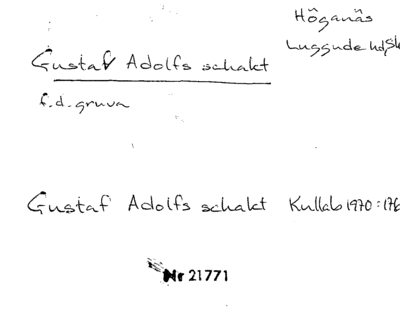 Höganäs
Luggude hd, Sk
Gustaf Adolfs schakt
f.d. gruva
Gustaf Adolfs schakt Kullab 1970:176
Nr 21771